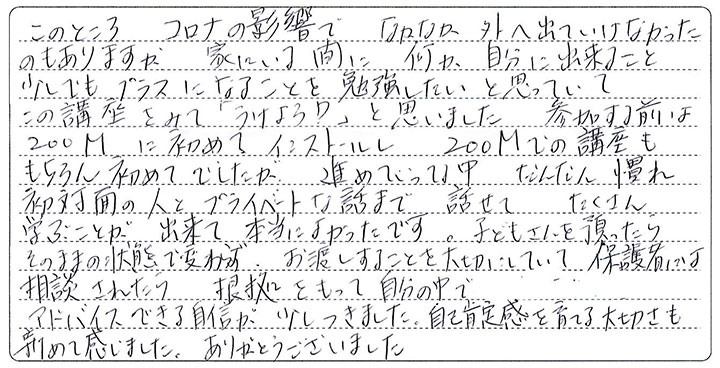 このところ コロナの影響で なかなか 外へ出ていけなかった
のもありますが 家にいる間に 何か、自分に出来ること
少しでもプラスになることを勉強したいと思っていて
この講座をみて「うけよう!?」と思いました 参加する前は
ZOOM に初めて インストールし ZOOMでの講座も
もちろん初めてでしたが、進めていってる中 だんだん慣れ
初対面の人とプライベートな話まで 話せて たくさん
学ぶことが 出来て 本当によかったです。子どもさんを預ったら
そのままの状態で変わず、お渡しすることを大切にしていて 保護者には
相談されたら 根拠をもって自分の中で
アドバイスできる自信が 少しつきました。自己肯定感を育てる大切さも
初めて感じました。ありがとうございました